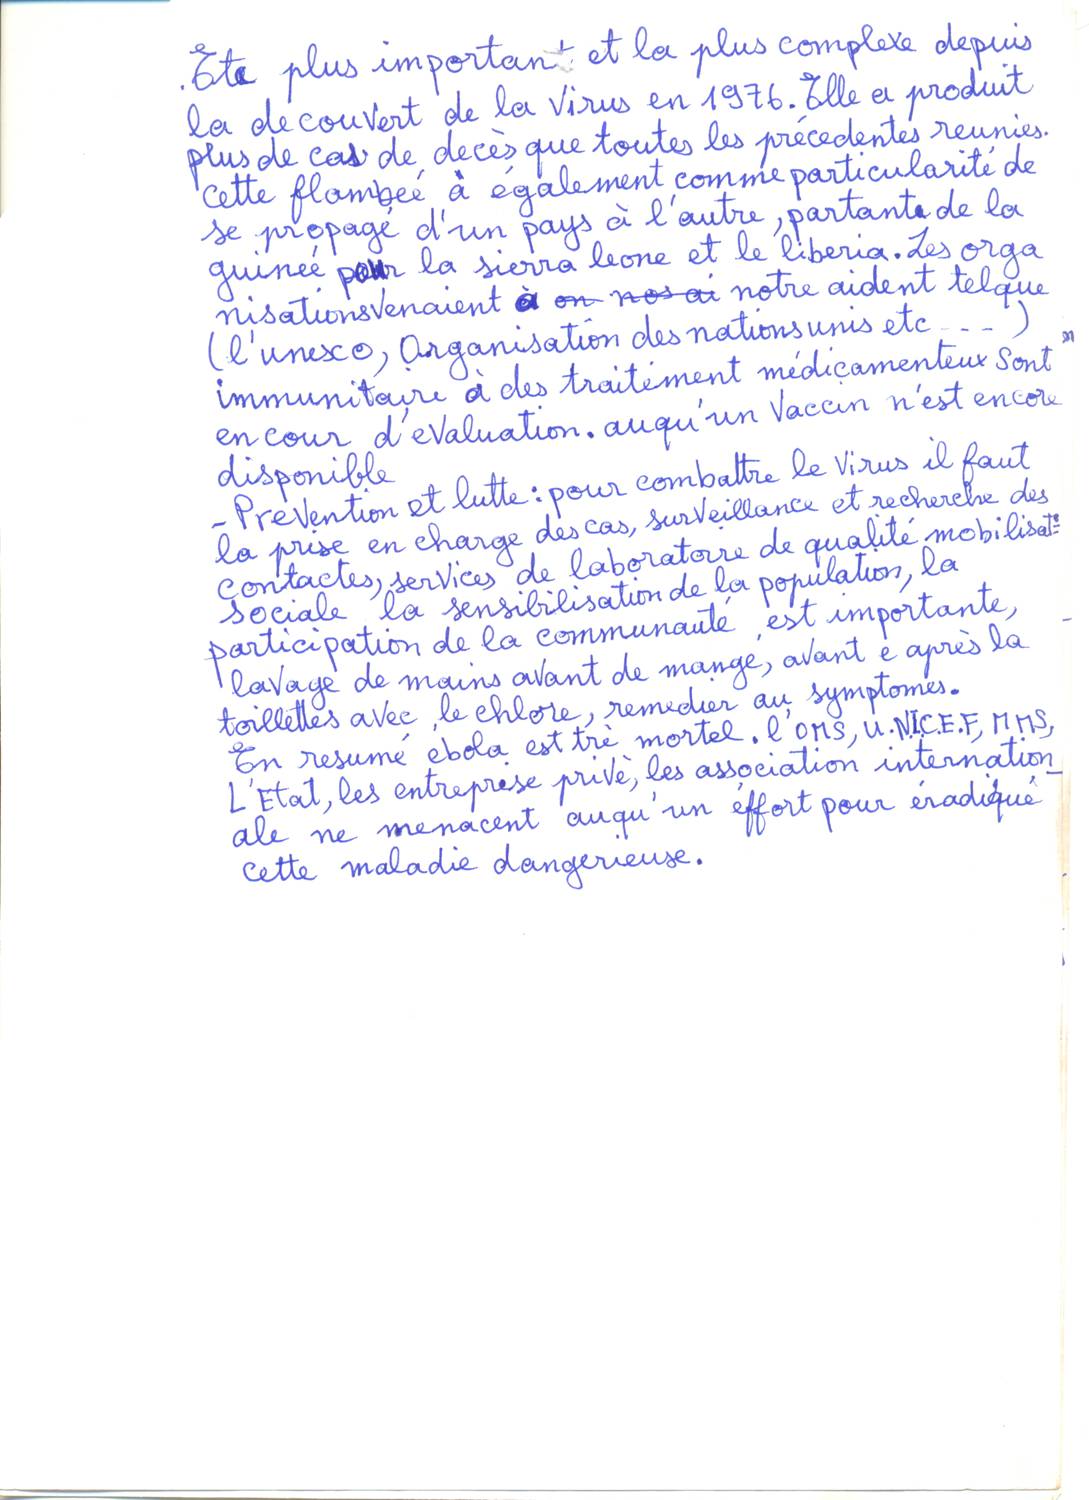 .Ete plus important et la plus complexe depuis
la decouvert de la Virus en 1976. Elle a produit
plus de cas de decès que toutes les précedentes reunies.
cette flambeé à également comme particularité de
se propagé d'un pays à l'autre, partante de la
guineé pour la sierra leone et le liberia. Les orga
nisations venaient à on nos ai notre aident telque
(l'unesco, Organisation des nations unis etc - - - )
immunitaire à des traitement médicamenteux Sont
en cour d'evaluation. auqu'un Vaccin n'est encore
disponible
- Prevention et lutte : pour combattre le Virus il faut
la prise en charge des cas, surveillance et recherche des
contactes, services de laboratoire de qualité mobilisat°
sociale la sensibilisation de la population, la
participation de la communauté est importante,
lavage de mains avant de mange, avant e après la
toillettes avec le chlore, remedier au symptomes.
En resumé ébola est trè mortel. l'OMS, U.NICEF, MMS,
L'Etat, les entreprise privè, les association internation_
ale ne menacent auqu'un éffort pour éradiqué
cette maladie dangerieuse.